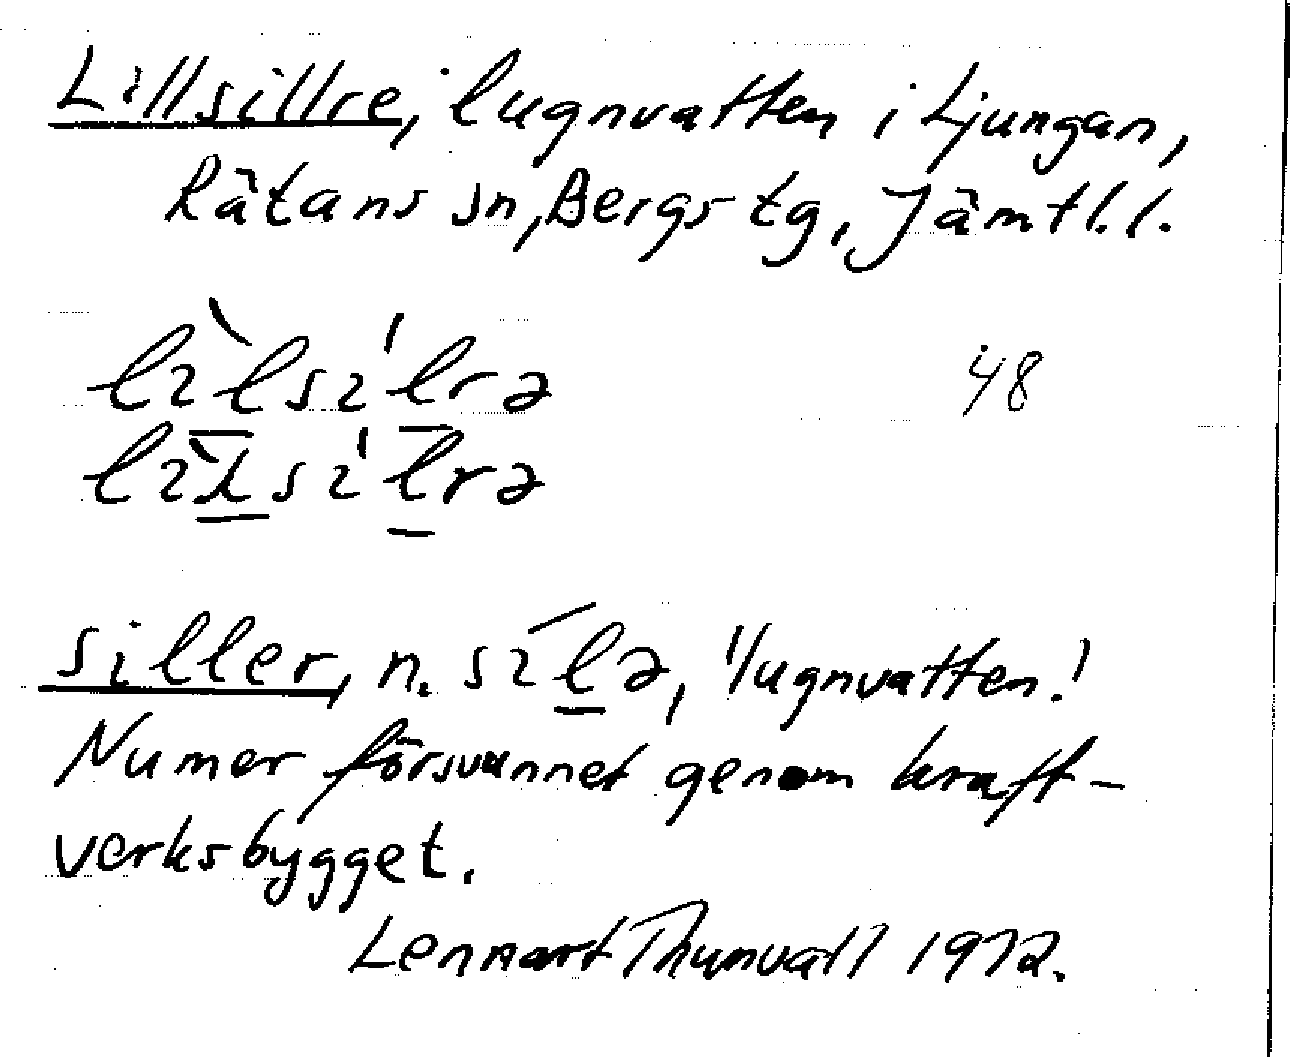 Lillsillre, lugnvatten i Ljungan,
Rätans sn, Bergs tg, Jämtl.l.
48
siller, n. 'lugnvatten.'
Numer försvunnet genom kraft-
verksbygget.
Lennart Thunvall 1972.